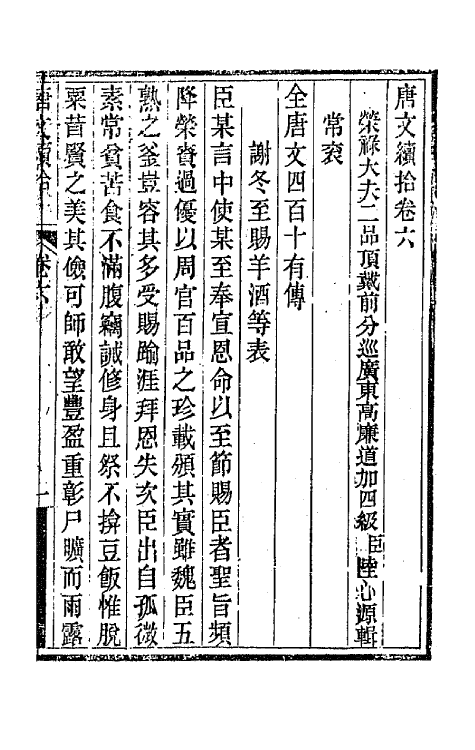 唐文續拾卷六
榮祿大夫二品頂戴前分巡廣東高廉道加四級臣陸心源輯
常袞
全唐文四百十有傳
謝冬至賜羊酒等表
臣某言中使某至奉宣恩命以至節賜臣者聖旨頻
降榮賚過優以周官百品之珍載頒其實雖魏臣五
熟之釜豈容其多受賜踰涯拜恩失次臣出自孤微
素常貧苦食不滿腹竊誠修身且祭不揜豆飯惟脫
粟昔賢之美其儉可師敢望豐盈重彰尸曠而雨露
唐文續拾
卷六
一